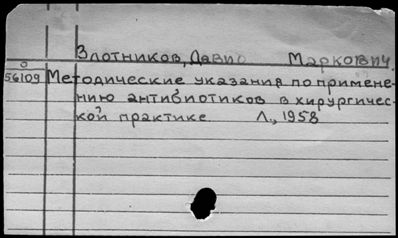 Злотников, Давид Маркович.
56109 Методические указания по примене-
нию антибиотиков в хирургичес-
кой практике Л., 1958